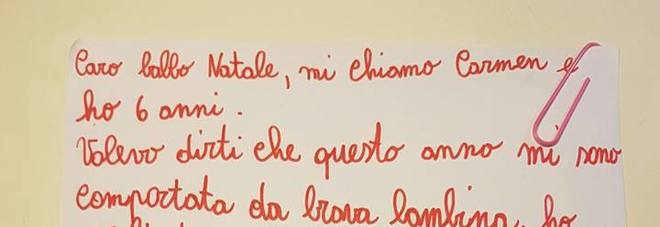 Caro babbo Natale, mi chiamo Carmen e
ho 6 anni.
Volevo dirti che questo anno mi sono
comportata da brava bambina, ho